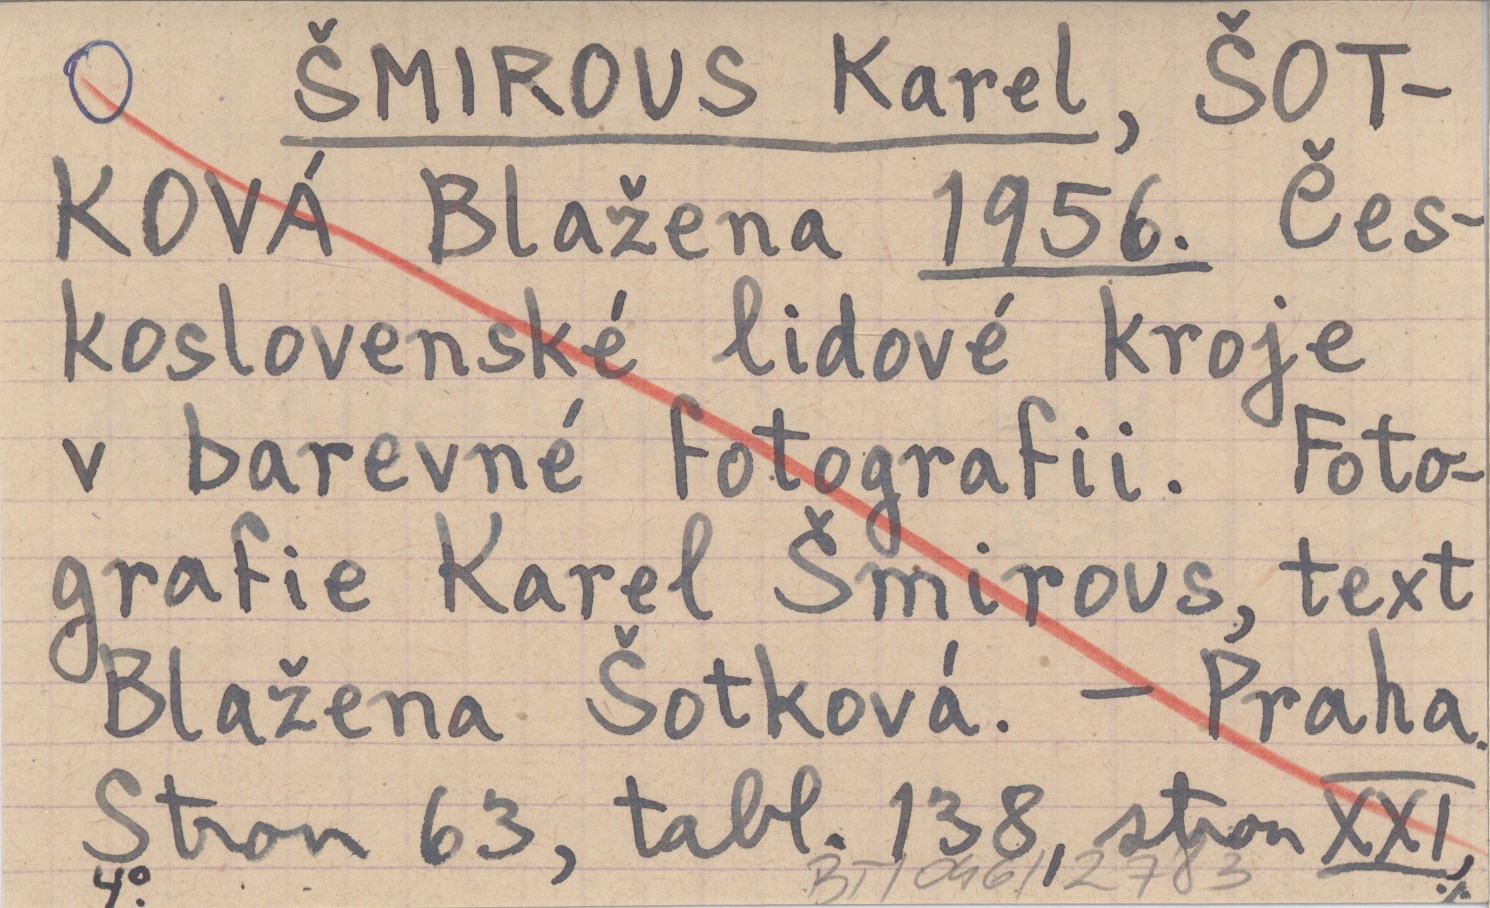 ŠMIROUS Karel, ŠOT-
KOVÁ Blažena 1956. Čes-
koslovenské lidové kroje
v barevné fotografii. Foto-
grafie Karel Šmirous, text
Blažena Šotková. – Praha.
Stron 63, tabl. 138, stron XXI,
4°. ./.